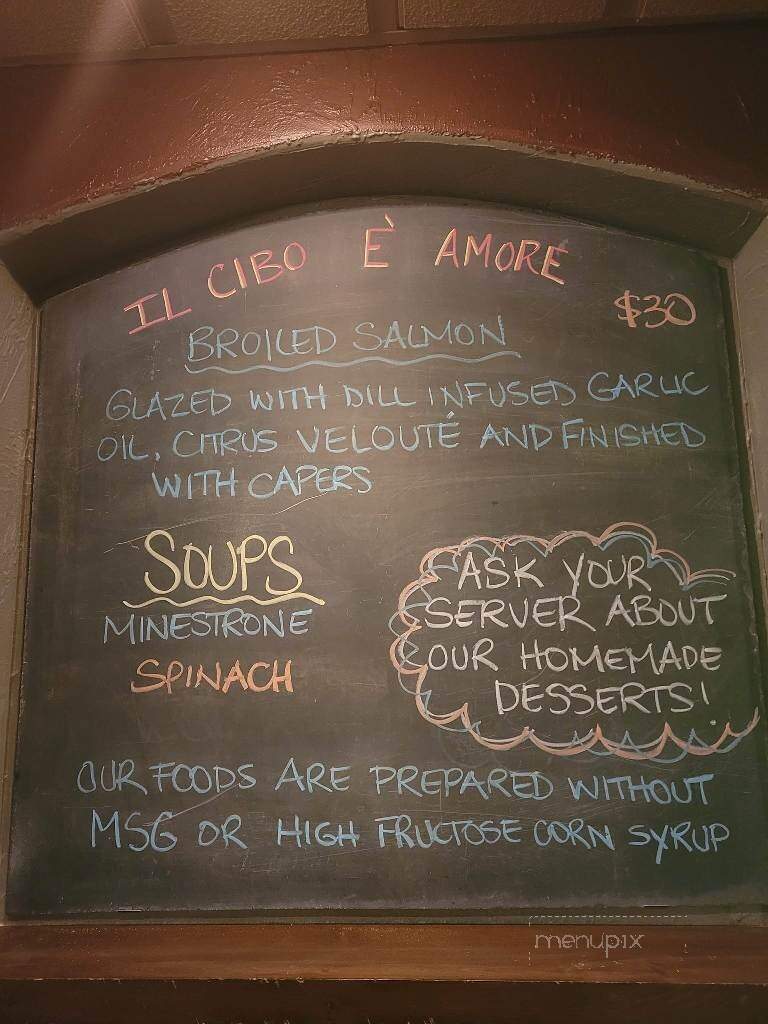 IL CIBO È AMORE
$30
BROILED SALMON
GLAZED WITH DILL INFUSED GARLIC
OIL, CITRUS VELOUTÉ AND FINISHED
WITH CAPERS
SOUPS
MINESTRONE
SPINACH
ASK YOUR
SERVER ABOUT
OUR HOMEMADE
DESSERTS!
OUR FOODS ARE PREPARED WITHOUT
MSG OR HIGH FRUCTOSE CORN SYRUP
menupix